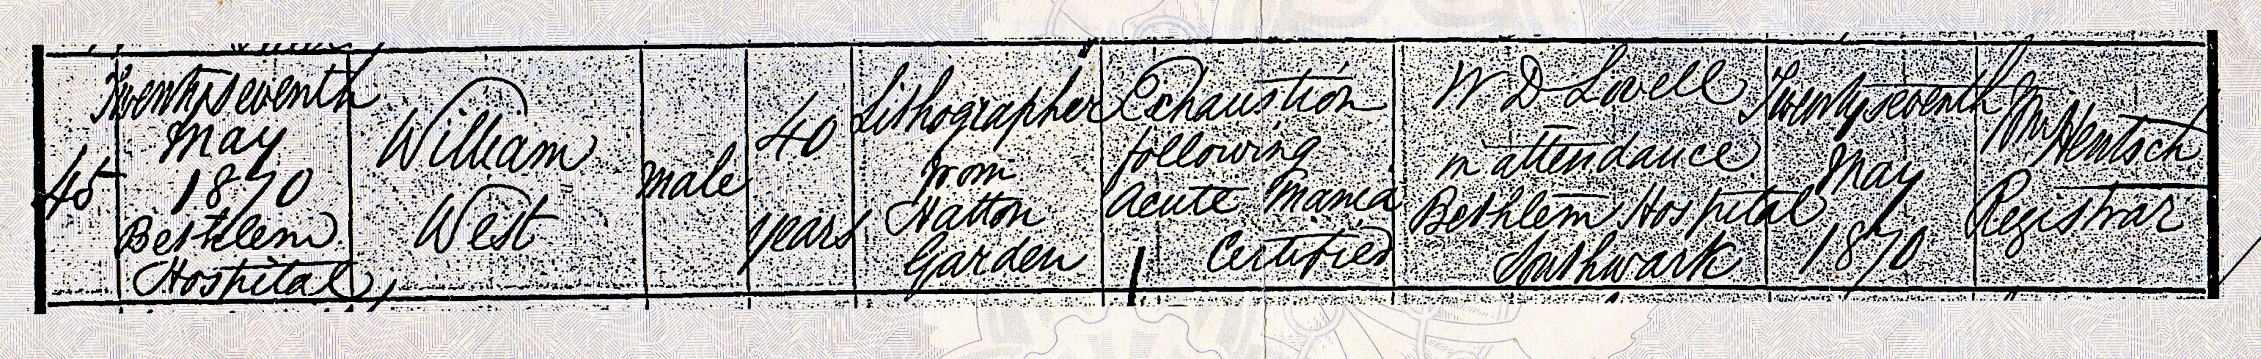 45
Twenty seventh
May
1870
Bethlem
Hospital
William
West
male
40
years
Lithographer
from
Hatton
Garden
Exhaustion
following
Acute Mania
Certified
W D Lovell
in attendance
Bethlem Hospital
Southwark
Twenty seventh
May
1870
Wm Hentsch
Registrar